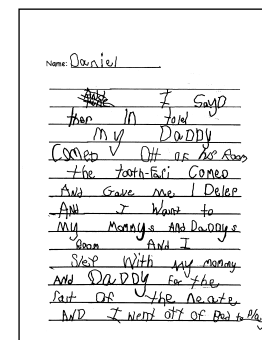 Name: Daniel
I Sayd
then In told
my DaDDy
Comeo Ott of his Room
the tooth-fari Comeo
AND Gave me 1 Doler
AND I Want to
My Mommys AnD Daddys
Room AnD I
Slep With My mommy
AND DaDDy For the
Rast OF the neate
AND I went ott of Bed to Play